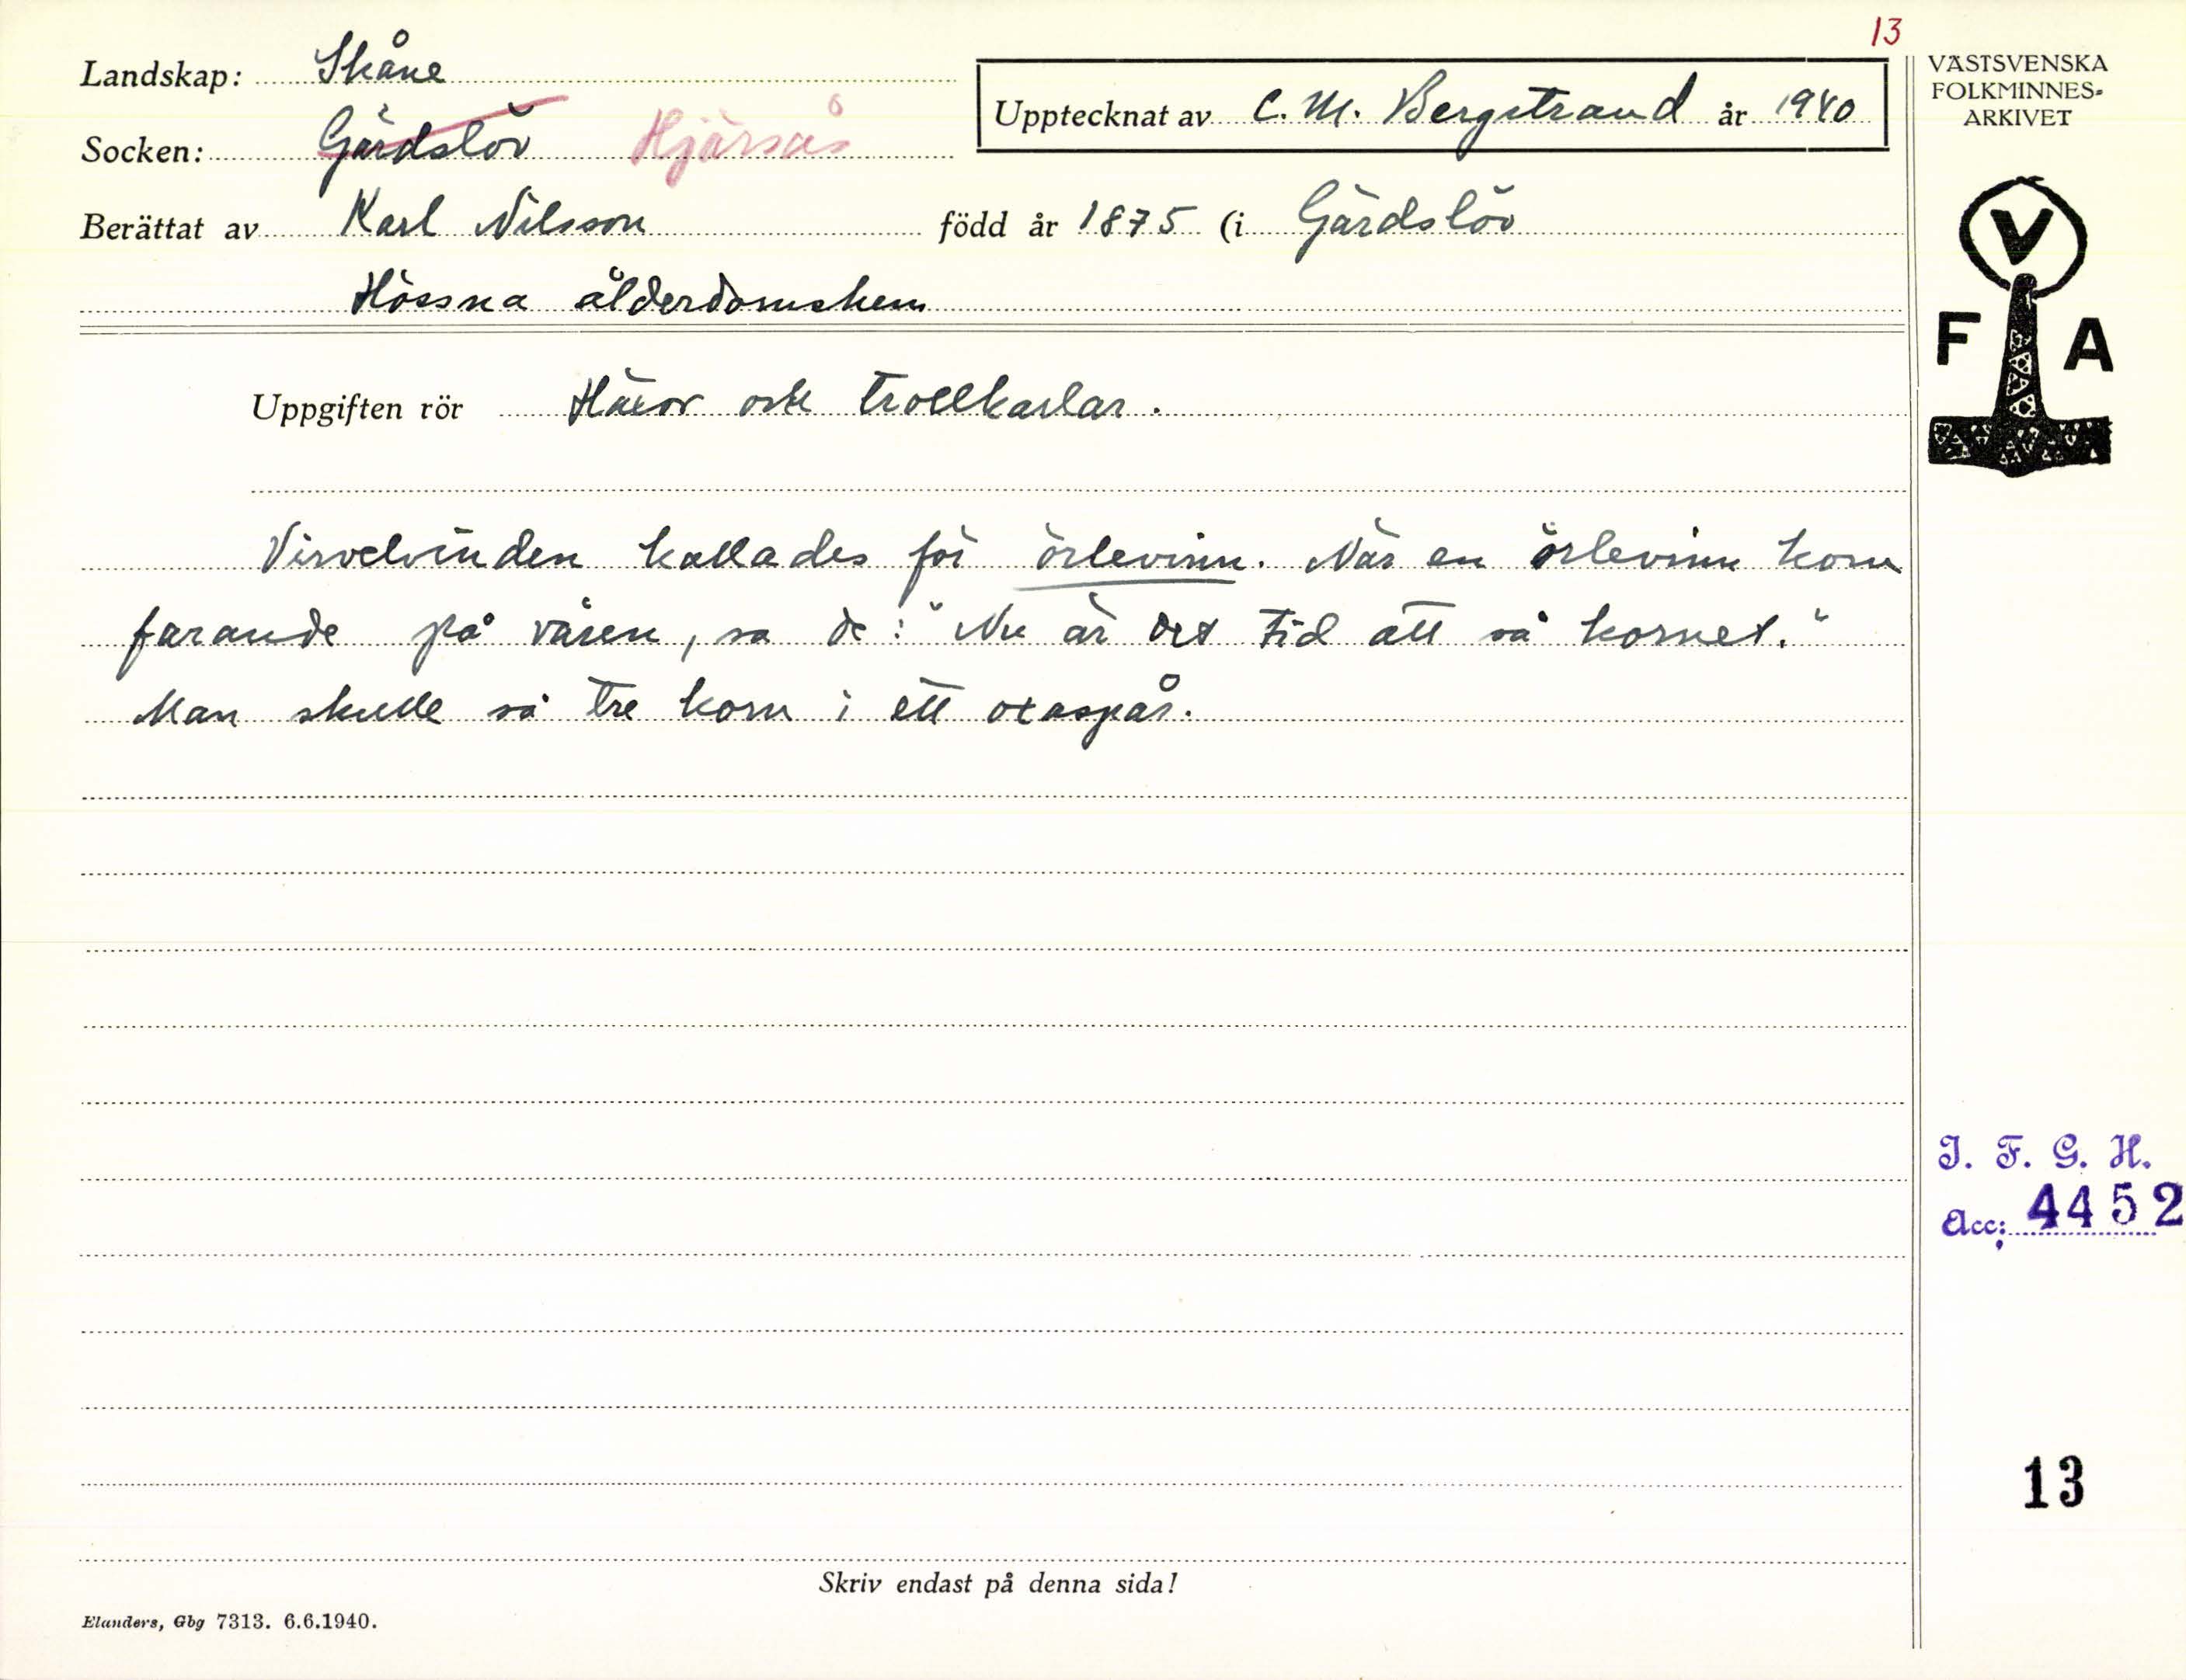 13
Landskap: Skåne
Upptecknat av C. M. Bergstrand år 1940
Socken: Gärdslöv Hjärsås
Berättat av Karl Nilsson född år 1875 (i Gärdslöv
Hössna ålderdomshem
Uppgiften rör Häxor och trollkarlar.
Virvelvinden kallades för örlevinn. När en örlevinn kom
farande på våren, sa de: "Nu är det tid att så kornet."
Man skulle så tre korn i ett oxaspår.
Skriv endast på denna sida!
Elanders, Gbg 7313. 6.6.1940.
VÄSTSVENSKA
FOLKMINNES-
ARKIVET
V
F A
I. F. G. H.
Acc: 4452
13